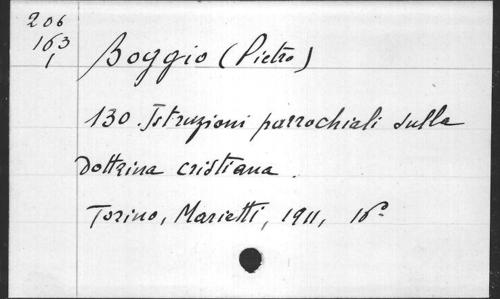 206
163
1
Boggio (Pietro)
130. Istruzioni parrochiali sulla
Dottrina cristiana.
Torino, Marietti, 1911, 16°